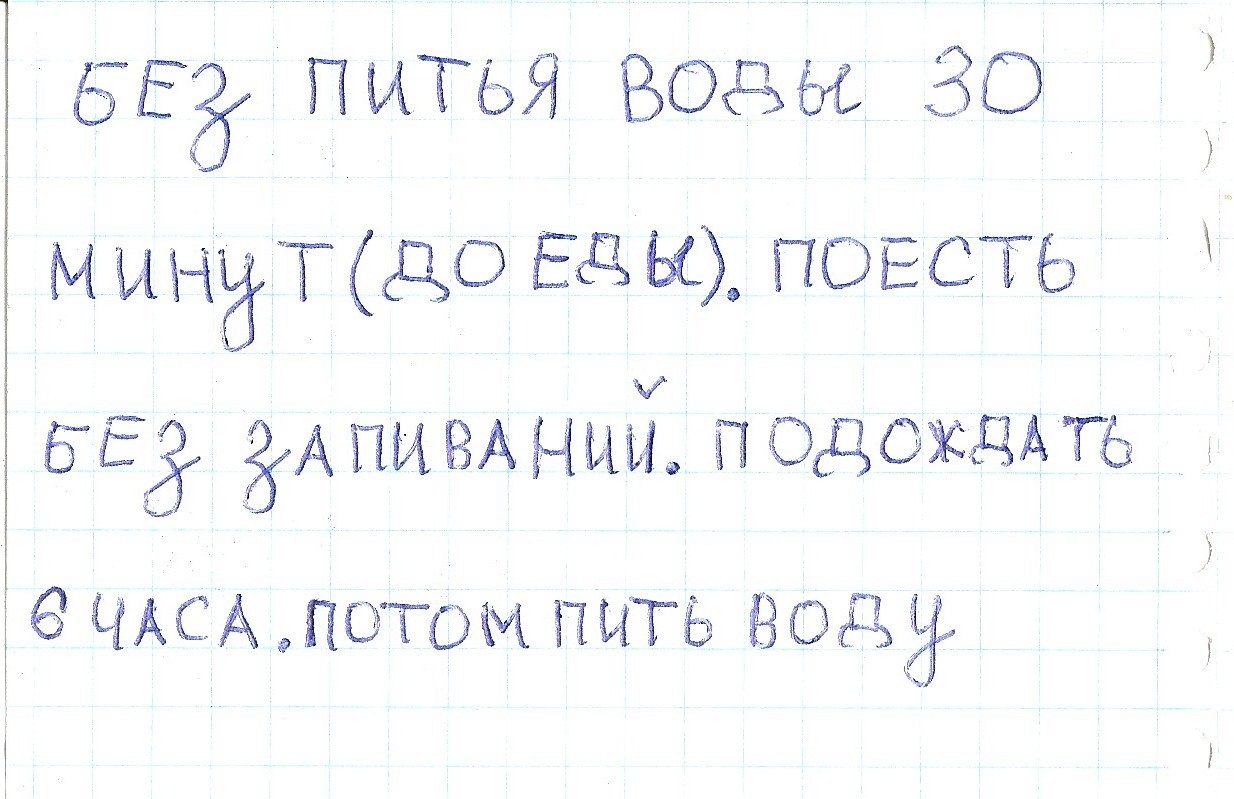 БЕЗ ПИТЬЯ ВОДЫ 30
МИНУТ (ДО ЕДЫ). ПОЕСТЬ
БЕЗ ЗАПИВАНИЙ. ПОДОЖДАТЬ
6 ЧАСА. ПОТОМ ПИТЬ ВОДУ